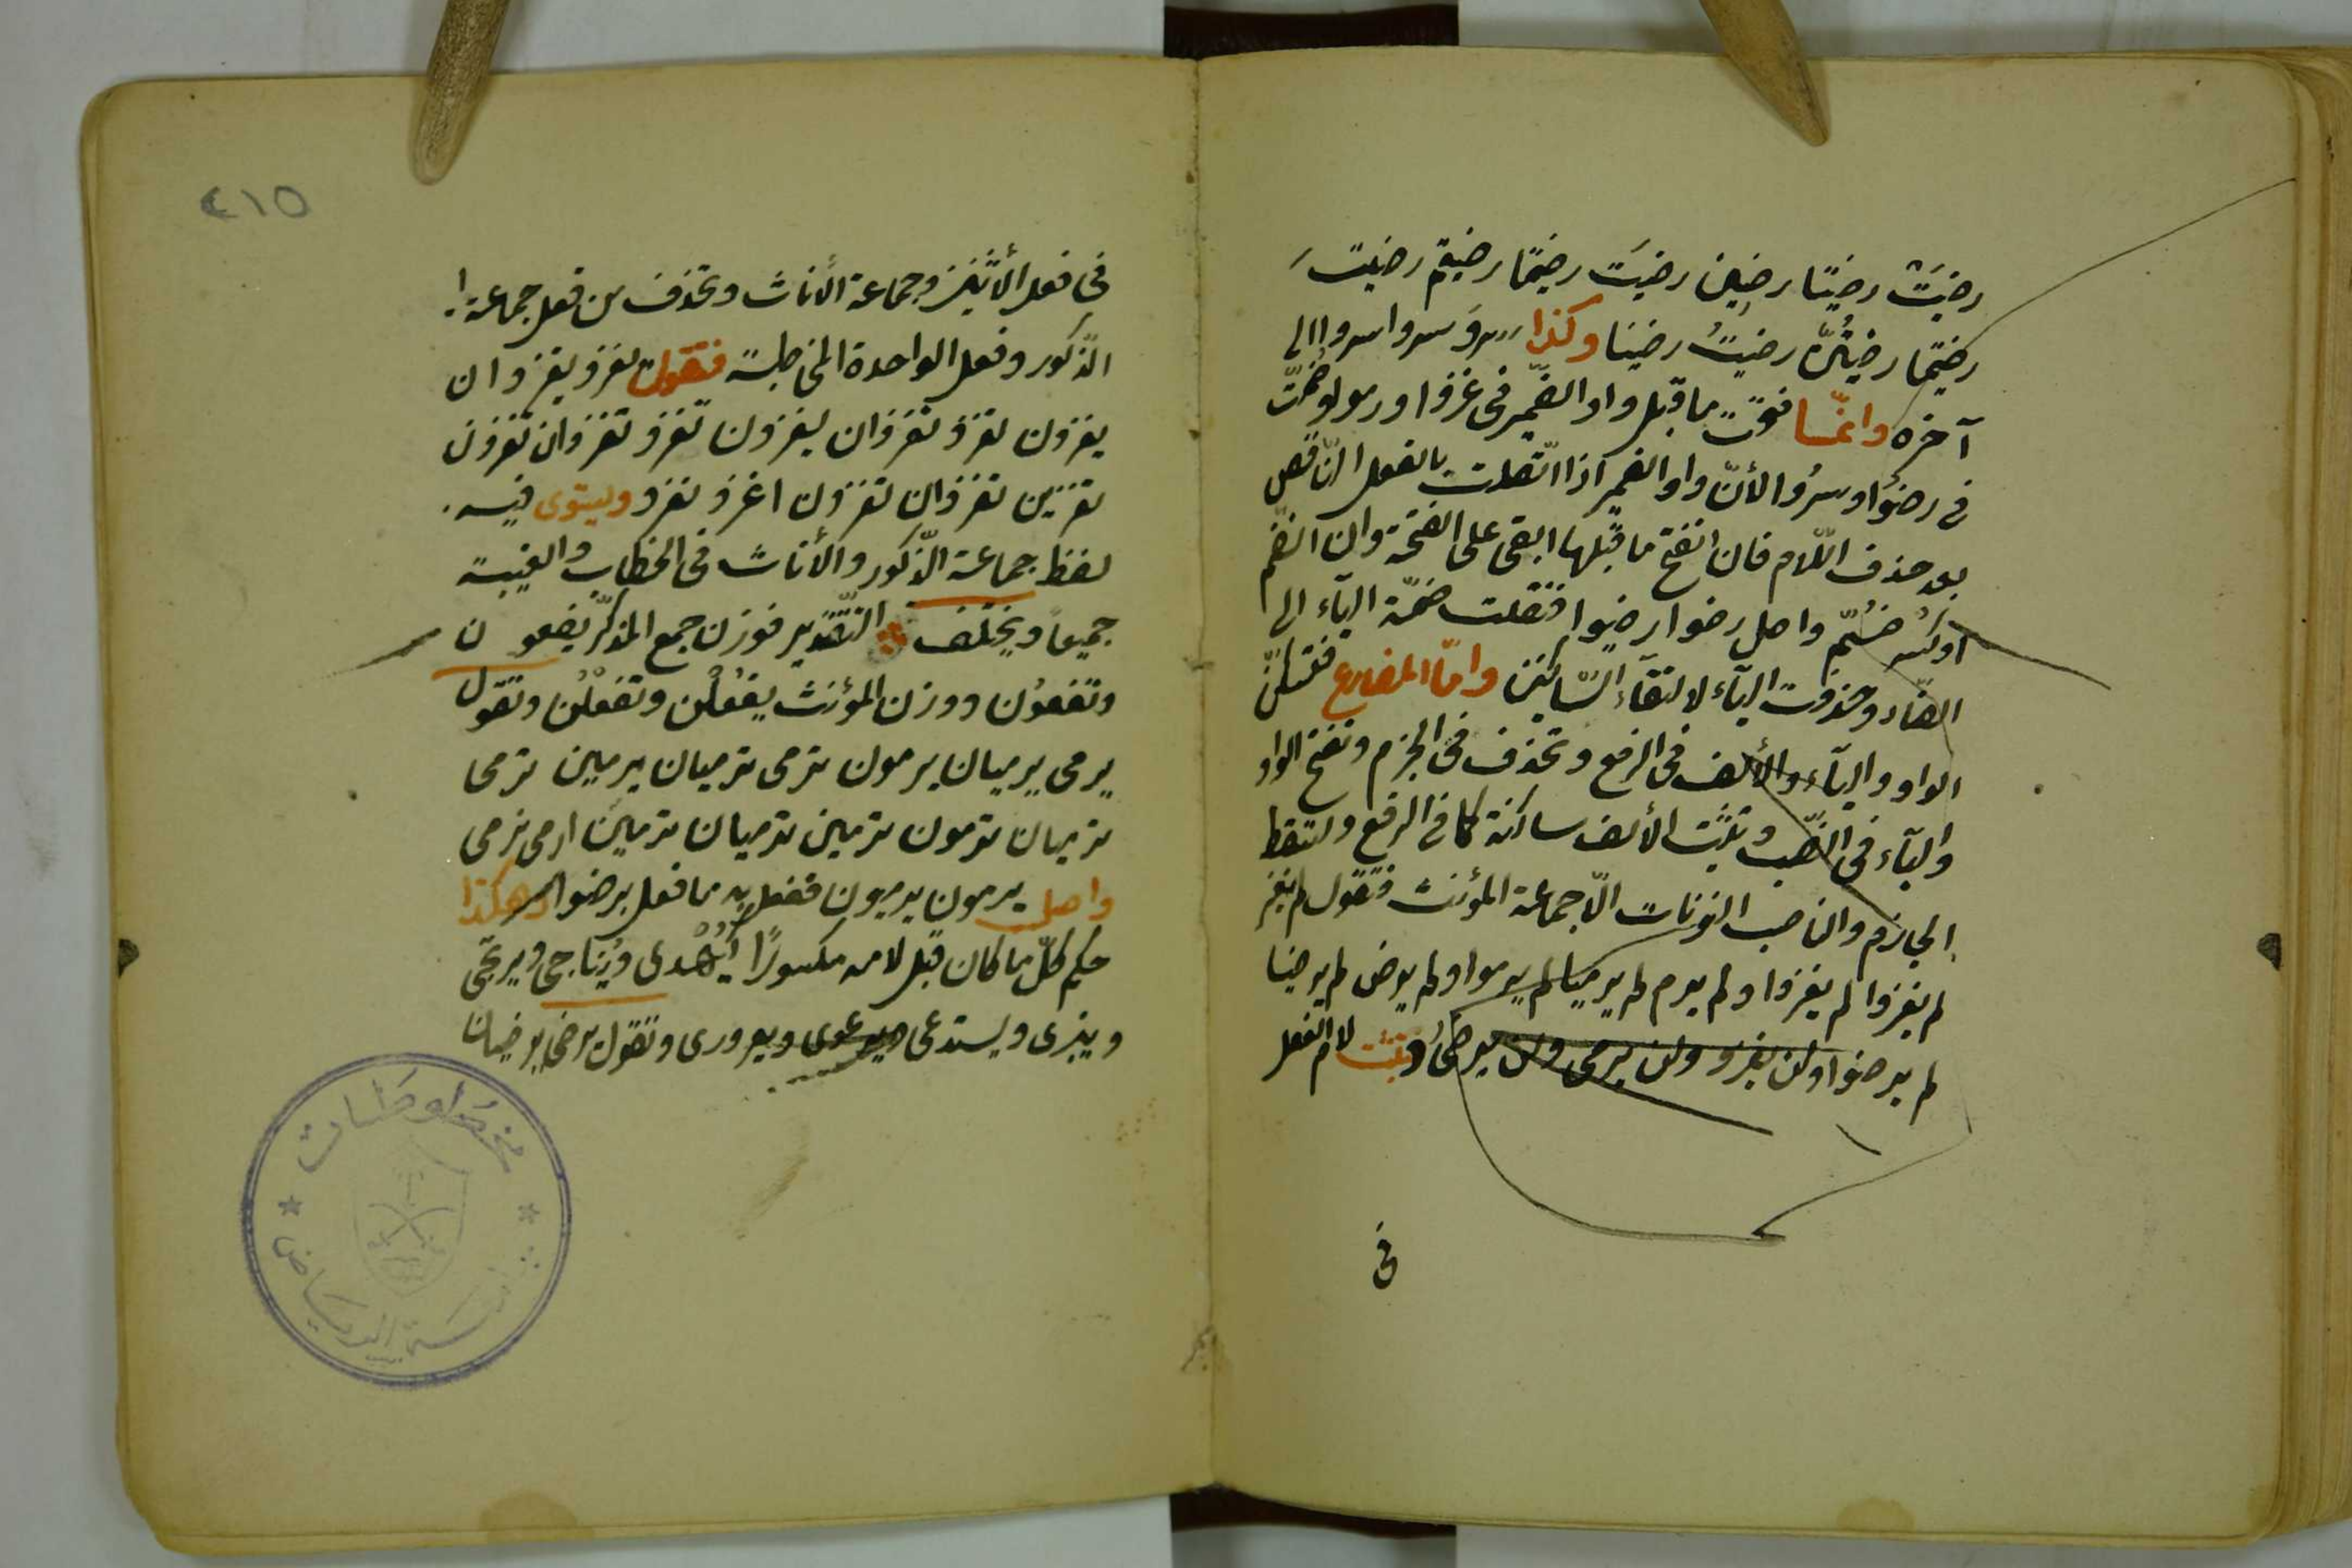 رضيَتْ رضيتا رضين رضيتَ رضيتما رضيتم رضيتِ
رضيتما رضيتنّ رضيتُ رضينا وكذا سروَ سروا سروا الى
آخره وانّما فتحت ما قبل واو الضّمير في غزوا ورموا وضمّت
في رضوا وسرُوا لأنّ واو الضمير اذا اتّصلت بالفعل النّاقص
بعد حذف اللّام فان انفتح ما قبلها ابقى على الفتحة وان انضّم
او كسر ضُمّ واصل رضوا رضيوا فنقلت ضمّة اليآء الى
الضّاد وحذفت اليآء لالتقآء السّاكنين وامّا المضارع فتسكّن
الواو واليآء والألف في الرفع وتحذف في الجزم وتفتح الواو
واليآء في النّصب وتثبت الألف ساكنة كما في الرفع ولسقط
الجازم والناصب النونات الّا جماعة المؤنث فتقول لم يغز
لم يغزوا لم يغزوا ولم يرم لم يرميا لم يرموا ولم يرض لم يرضيا
لم يرضوا ولن يغزو ولن يرمى ولن يرضى وتثبت لام الفعل
في
٤١٥
في فعل الأثنين وجماعة الأناث وتحذف من فعل جماعة
الذّكور وفعل الواحدة المخاطبة فتقول يغزو يغزوان
يغزون تغزو تغزوان يغزون تغزو تغزوان تغزون
تغزين تغزوان تغزون اغزو نغزو ويستوى فيه
لفظ جماعة الذّكور والأناث في الخطاب والغيبة
جميعاً ويختلف التّقدير فوزن جمع المذكّر يفعون
وتفعوُن ووزن المؤنث يفعُلْن وتفعُلْن وتقول
يرمى يرميان يرمون ترمى ترميان يرمين ترمى
ترميان ترمون ترمين ترميان ترمين ارمى نرمى
واصل يرمون يرميون ففعل به ما فعل برضوا وهكذا
حكم كلّ ما كان قبل لامه مكسورًا كيُهْدى ويُناجى ويرتجى
وينبرى ويستدعى ويرعوى ويعرورى وتقول يرضى يرضيان
مخطوطات